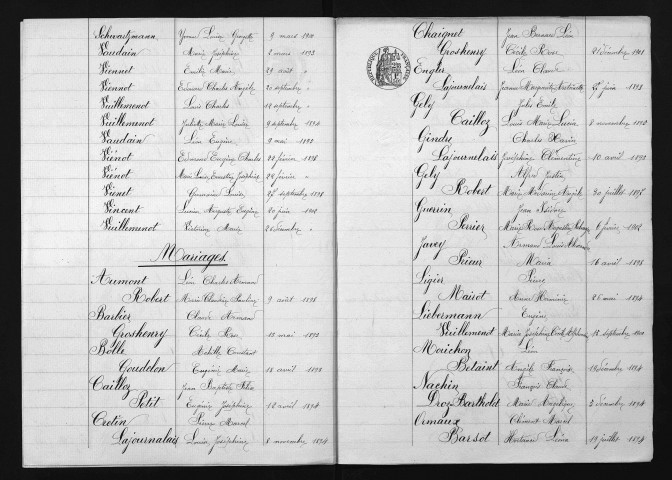 Schwartzmann Yvonne Louise Georgette 9 mars 1901
Vaudain Marie Joséphine 2 mars 1893
Viennot Emilie Marie 29 août "
Viennot Edmond Charles 20 septembre "
Vuillemenot Louis Charles 14 septembre "
Vuillemenot Juliette Marie Louise 9 septembre 1894
Vaudain Léon Eugène 9 mai
Viénot Edmond Eugène Charles 20 février 1898
Viénot Marie Louise Ernestine Joséphine 28 février "
Viénet Germaine Lucie 27 septembre 1898
Vincent Lucien Auguste Eugène 20 juin
Vuillemenot Victorine Marie 26 décembre "
Mariages.
Aumont Léon Charles Armand
Robert Marie Claudine Pauline 9 août 1898
Barbier Claude Armand
Groshenry Cécile Rose 13 mai 1893
Bolle Achille Constant
Goudelon Eugénie Marie 18 avril 1893
Caillez Jean Baptiste Félix
Petit Eugénie Joséphine 12 avril 1894
Cretin Pierre Marcel
Lajournalais Louise Joséphine 8 novembre 1894
Chaignet Jean Léon
Groshenry Cécile Rose 21 décembre 1901
Engler Léon Claude
Lajournalais Jeanne Marguerite 27 juin 1893
Gély Jules Emile
Caillez Louise Marie Lucie 8 novembre 1893
Gindre Charles Xavier
Lajournalais Joséphine Clémentine 10 avril 1893
Gély Alfred
Robert Marie 30 juillet 1895
Guerrin Jean
Perrier Marie Rose Augustine 6 février 1902
Javey Armand Louis
Prieur Maria 16 avril 1898
Ligier Pierre
Mairot Marie Herminie 26 mai 1894
Liebermann Eugène
Vuillemenot Marie Joséphine 18 septembre
Mouichon Léon
Betaint François décembre 1894
Nachin François Claude
Droz Bartholet Marie Angélique 3 décembre 1894
Ormaux Clément Marcel
Barsot Hortense Léonie 19 juillet 1894